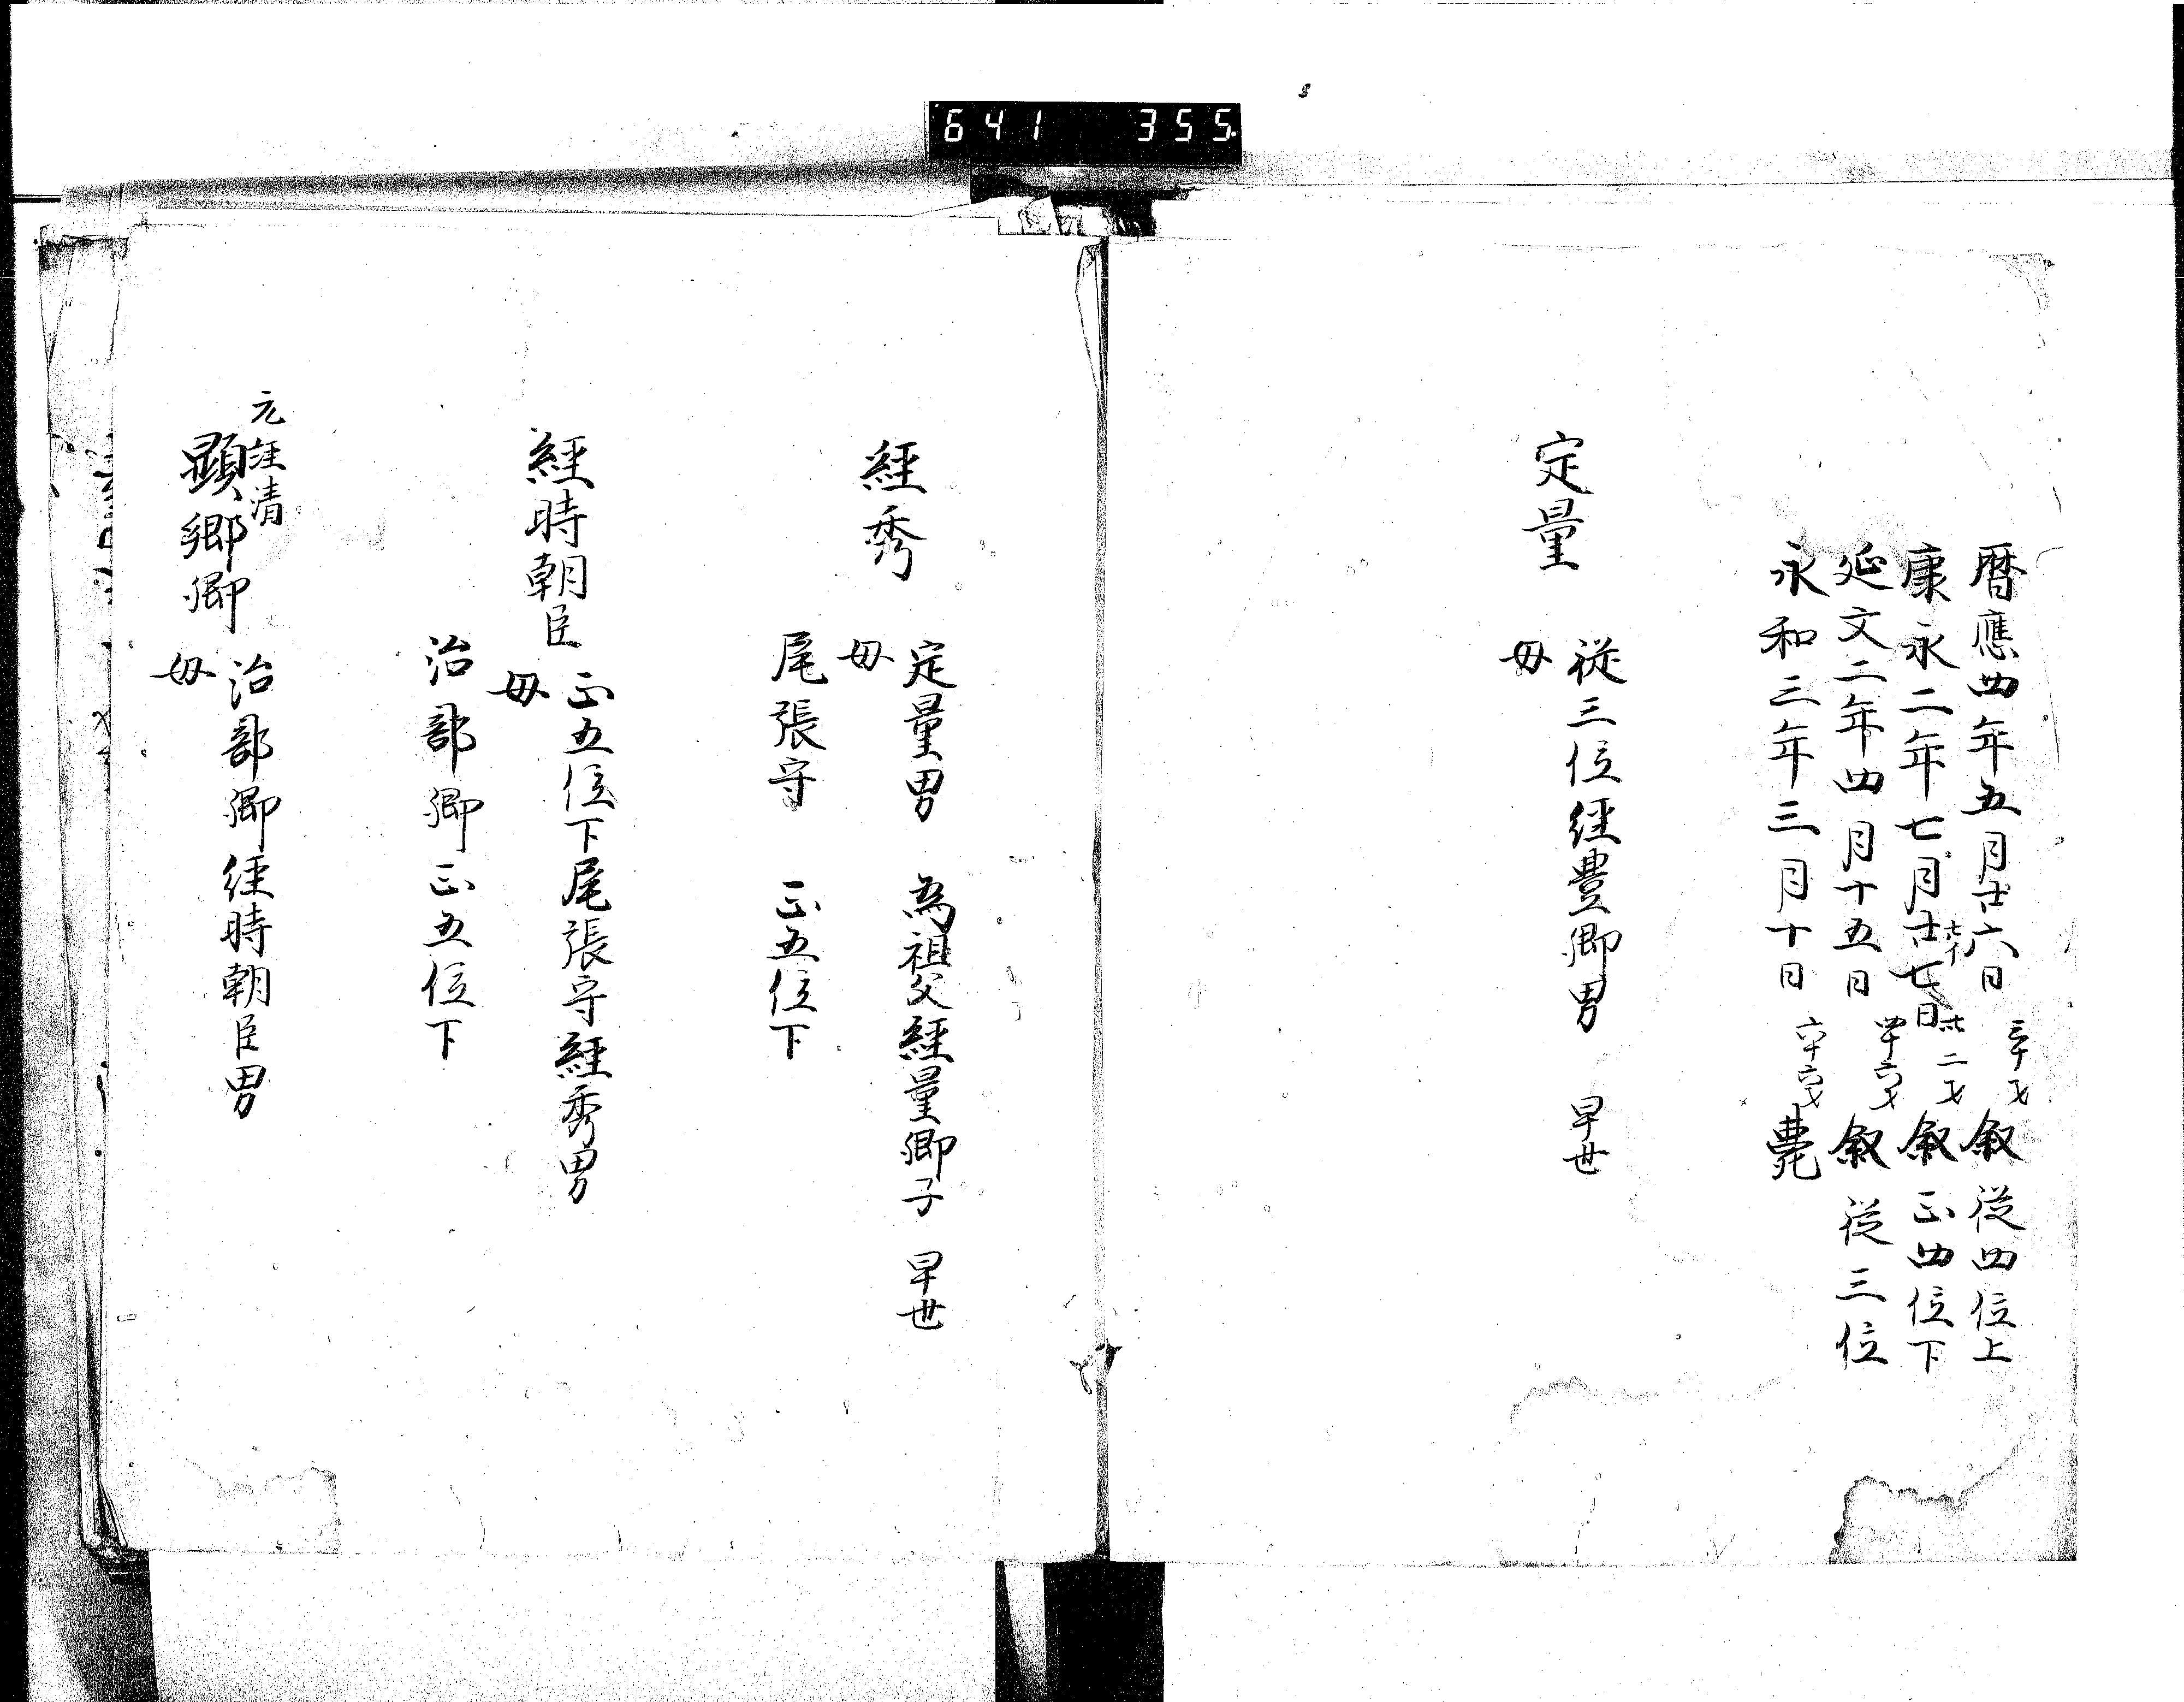 641 355
暦應四年五月廿六日 三十才 叙従四位上
康永二年七月廿七日 卅二才 叙正四位下
延文二年四月十五日 四十六才 叙従三位
永和三年三月十日 六十六才 薨
定量 従三位経豊卿男 早世
母
經秀 定量男 為祖父經量卿子 早世
母
尾張守 正五位下
經時朝臣 正五位下尾張守經秀男
母
治部卿正五位下
元経清
顕郷卿 治部卿経時朝臣男
母